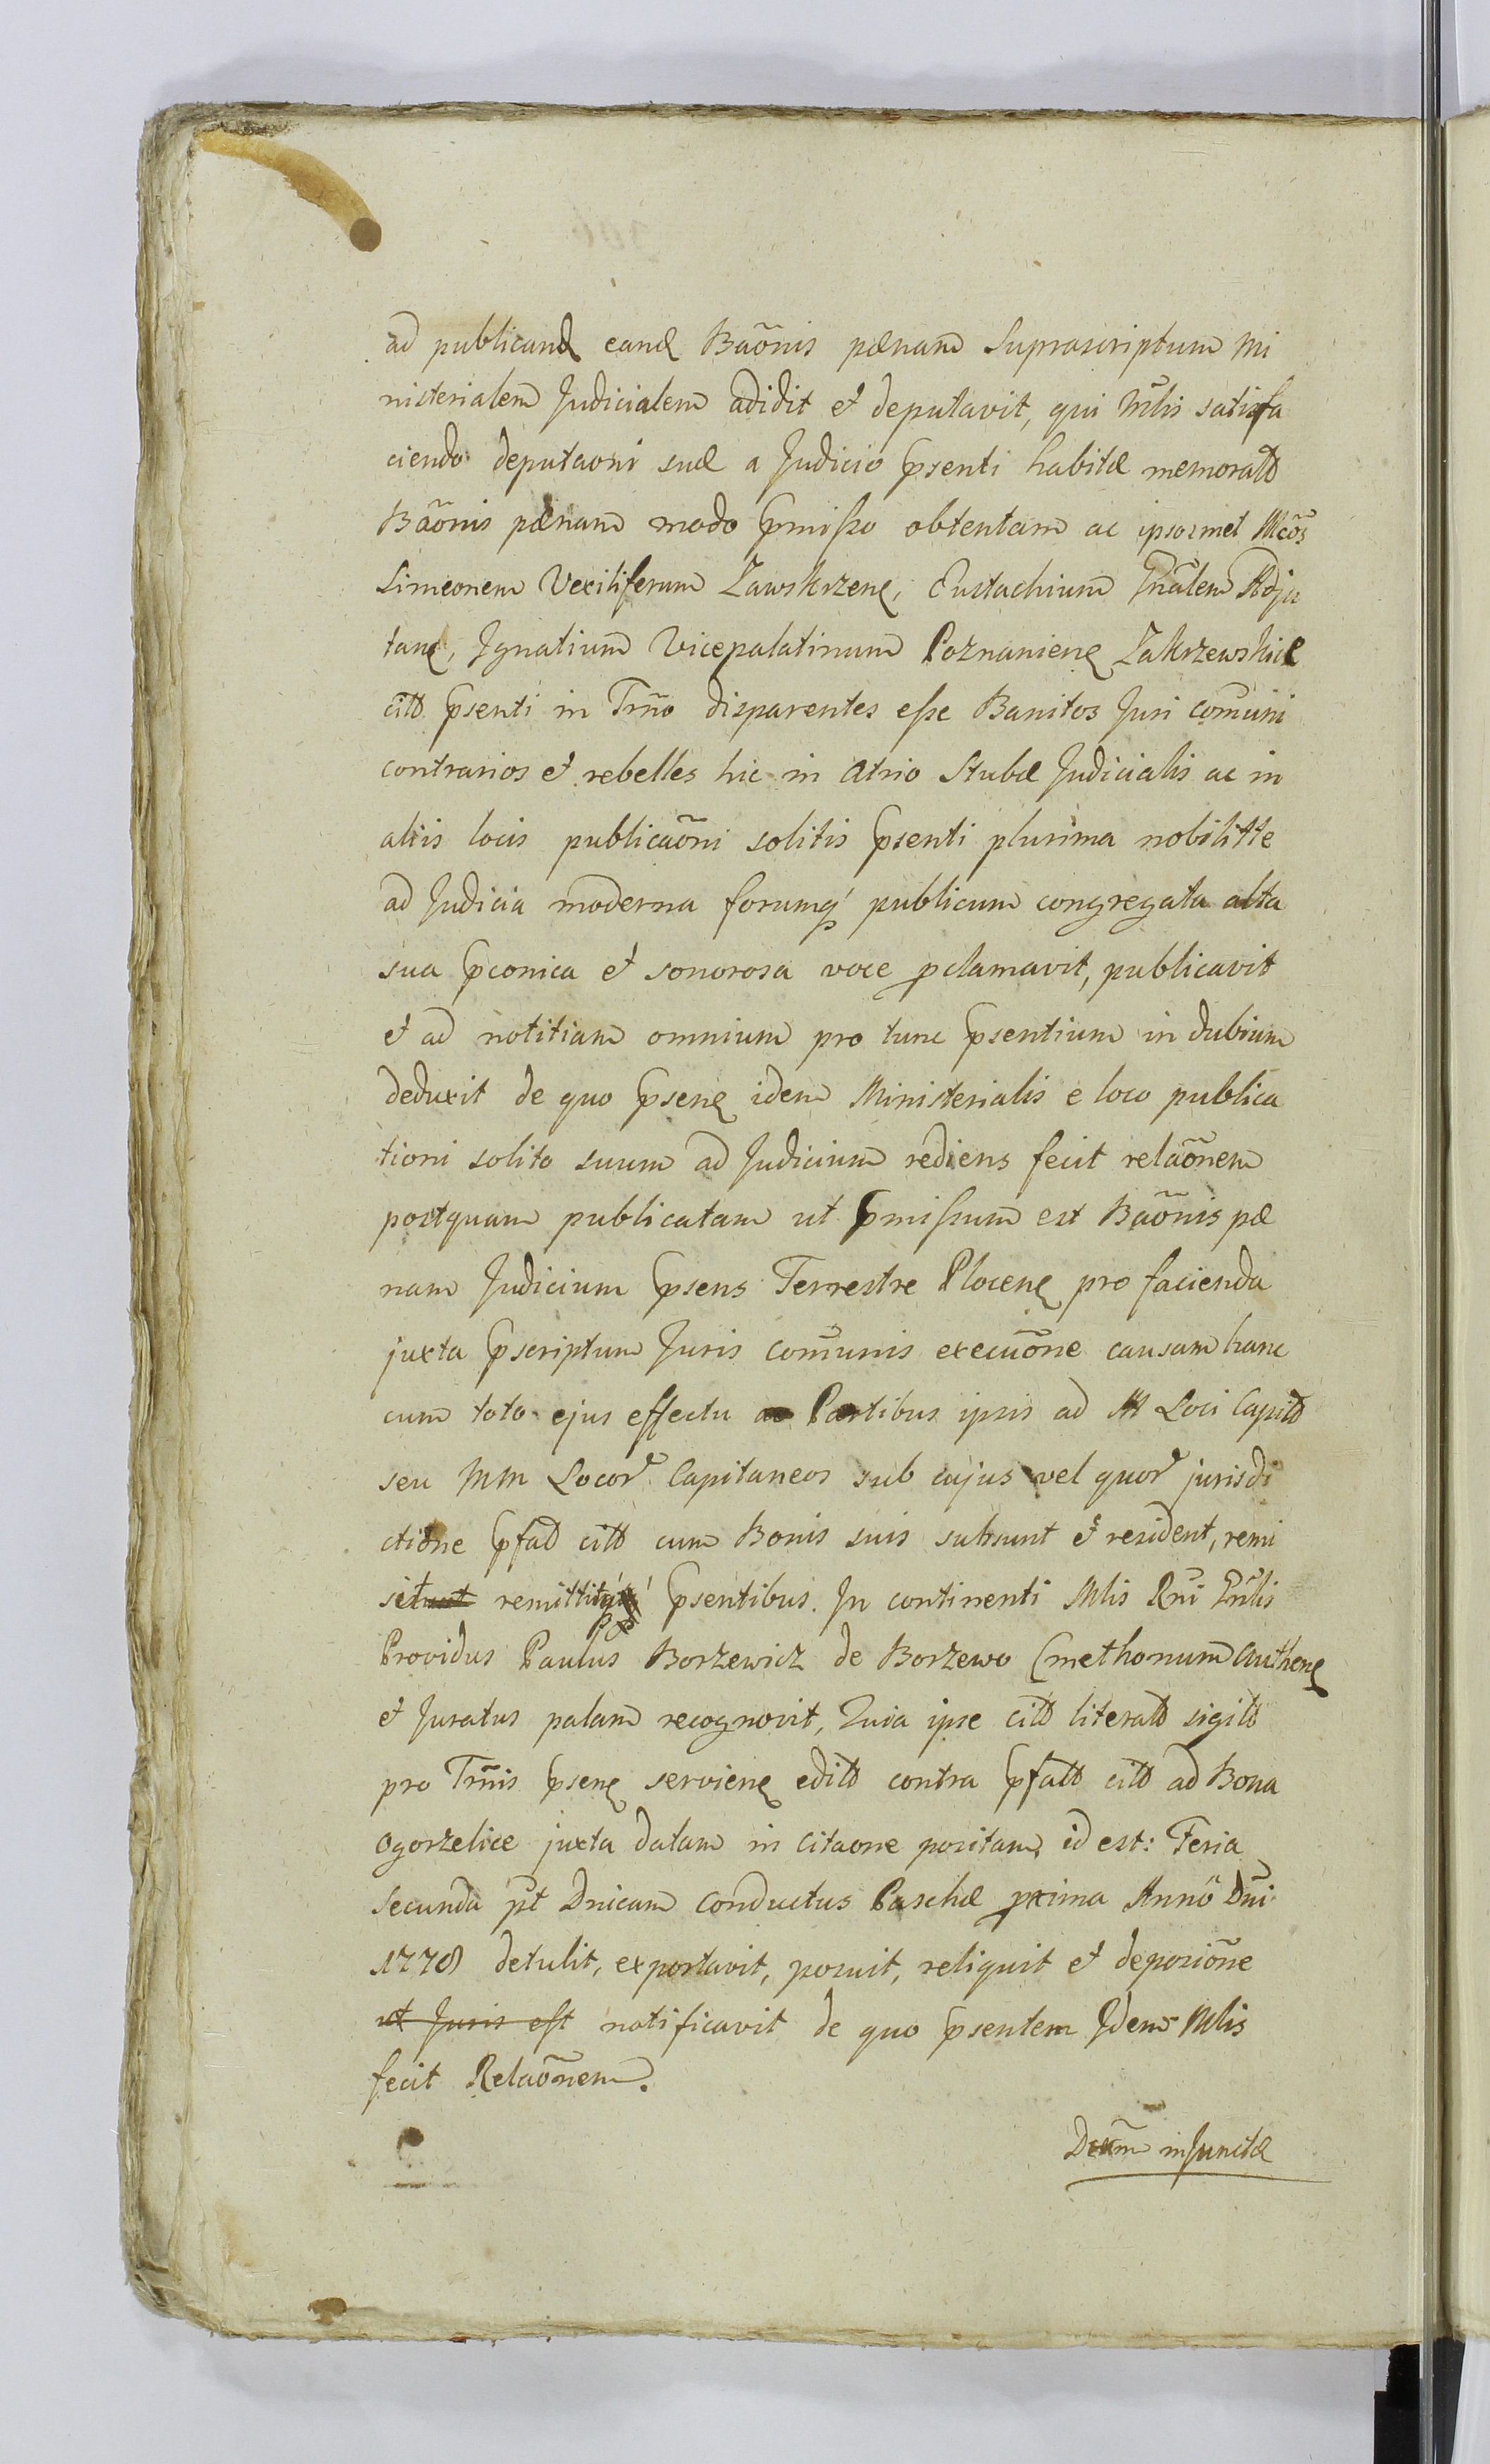 ad publicand eand Baõnis pœnam suprascriptum Mi
nisterialem Judicialem adidit et deputavit, qui Mlis satisfa
ciendo deputaoni suæ a Judicio pſenti habitæ memoratt
Baõnis pœnam modo pmiſso obtentam ac ipsosmet Mcos
Simeonem Vexiliferum Zawskrzen, Eustachium Gnãlem Adju
tan, Ignatium Vicepalatinum Poznanien Zakrzewskie
citt psenti in Trño disparentes eſse Banitos Juri comuni
contrarios et rebelles hic in Atrio Stubæ Judicialis ac in
aliis locis publicaõni solitis psenti plurima nobilitte
ad Judicia moderna forumq publicum congregata alta
sua pconica et sonorosa voce pclamavit, publicavit
et ad notitiam omnium pro tunc psentium in dubium
deduxit de quo psen idem Ministerialis e loco publica
tioni solito suum ad Judicium rediens fecit relaõnem
postquam publicatam ut pmiſsum est Baõnis pœ
nam Judicium psens Terrestre Plocen pro facienda
juxta pscriptum Juris comunis execuõne causam hanc
cum toto ejus effectu ac Partibus ipsis ad M Loci Capitt
seu MM Locor Capitaneos sub cujus vel quor jurisdi
ctione pfatt citt cum Bonis suis subsunt et resident, remi
sit remittitq psentibus. In continenti Mlis Rni Gnlis
Providus Paulus Borzewicz de Borzewo Cmethonum Authen
et Juratus palam recognovit, Quia ipse citt literatt sigilt
pro Trñis psen servien editt contra pfatt citt ad Bona
Ogorzelice juxta datam in citaone positam, id est: Feria
secunda pt Dnicam Conductus Paschæ pxima Anno Dni
1778 detulit, exportavit, posuit, reliquit et deposiõne
ut Juris eſt notificavit de quo psentem Idem Mlis
fecit Relaõnem.
injunctæ